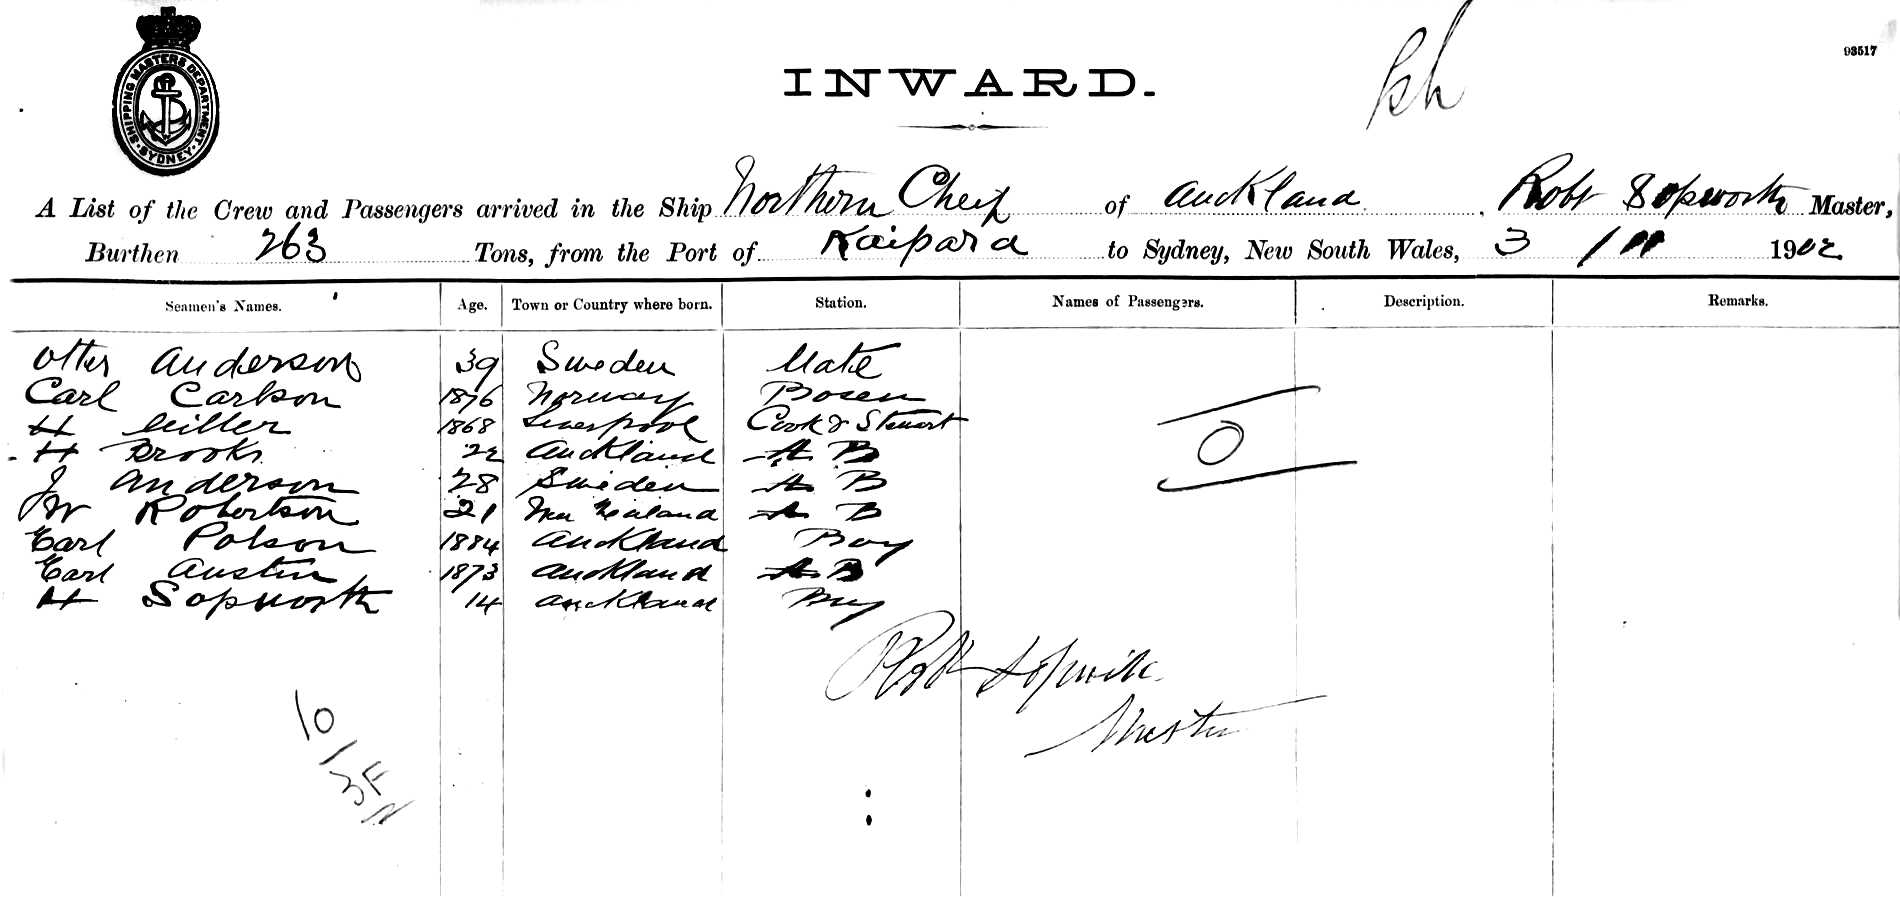 SHIPPING MASTERS DEPARTMENT
SYDNEY
93517
INWARD.
A List of the Crew and Passengers arrived in the Ship Northern Cheif of Auckland, Robt Sopworth Master,
Burthen 263 Tons, from the Port of Kaipara to Sydney, New South Wales, 3 / 11 1902
Seamen's Names. Age. Town or Country where born. Station. Names of Passengers. Description. Remarks.
Otter Anderson 39 Sweden Mate
Carl Carlson 1876 Norway Bosen
H Miller 1868 Liverpool Cook & Steward
H Brooks 22 Auckland A B
J Anderson 28 Sweden A B
W Robertson 21 New Zealand A B
Earl Polson 1884 Auckland Boy
Earl Austin 1873 Auckland A B
H Sopworth 14 Auckland Boy
O
Master
10